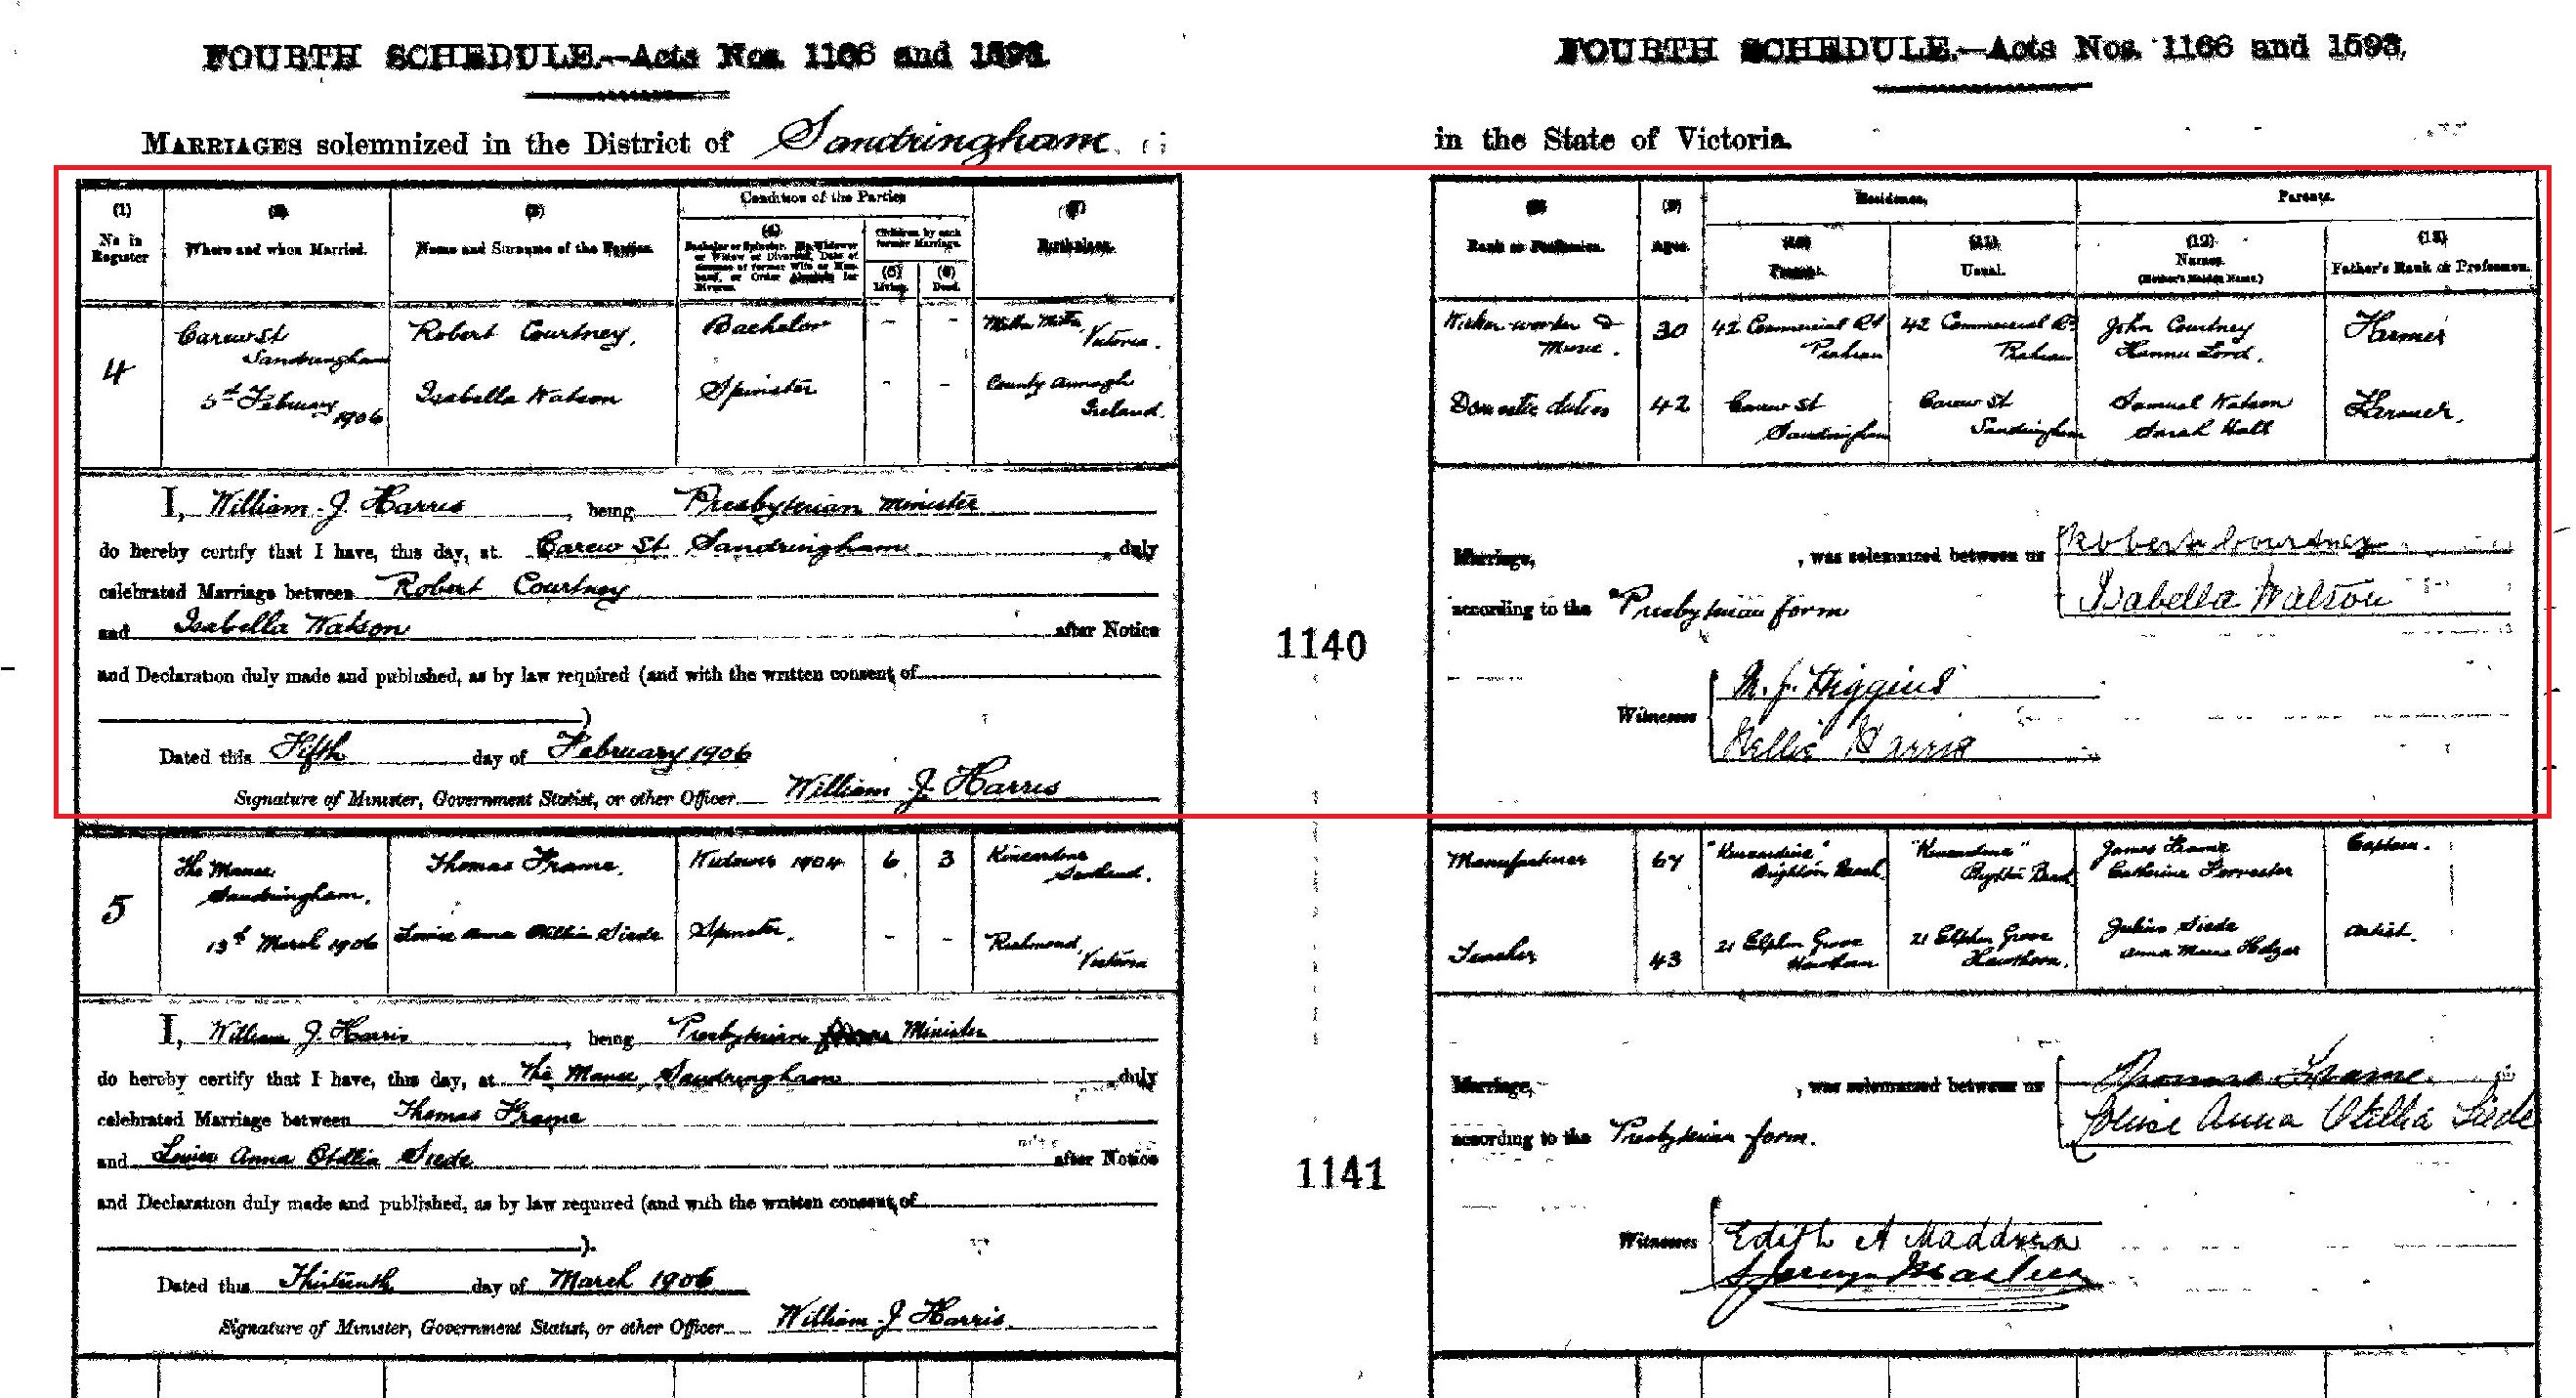 FOURTH SCHEDULE.—Acts Nos. 1166 and 1593.
MARRIAGES solemnized in the District of Sandringham
(1) No in Register
(2) Where and when Married.
(3) Name and Surname of the Parties.
Condition of the Parties
(4)
Children by each former Marriage.
(5) Living.
(6) Dead.
(7) Birthplace.
4
Carew St
Sandringham
5th February
1906
Robert Courtney,
Bachelor
-
-
Mitta Mitta,
Victoria.
Isabella Watson
Spinster
-
-
County Armagh
Ireland.
I, William J. Harris, being Presbyterian Minister
do hereby certify that I have, this day, at Carew St Sandringham, duly
celebrated Marriage between Robert Courtney
and Isabella Watson after Notice
and Declaration duly made and published, as by law required (and with the written consent of
)
Dated this Fifth day of February 1906
Signature of Minister, Government Statist, or other Officer William J. Harris
5
The Manse
Sandringham,
13th March 1906
Thomas Frame,
Widower 1904
6
3
Kincardine
Scotland.
Louise Anna Otillia Siede
Spinster,
-
-
Richmond,
Victoria
I, William J. Harris, being Presbyterian Minister
do hereby certify that I have, this day, at The Manse, Sandringham, duly
celebrated Marriage between Thomas Frame
and Louise Anna Otillia Siede after Notice
and Declaration duly made and published, as by law required (and with the written consent of
).
Dated this Thirteenth day of March 1906
Signature of Minister, Government Statist, or other Officer William J Harris.
1140
1141
FOURTH SCHEDULE.—Acts Nos. 1166 and 1593.
in the State of Victoria.
(8) Rank or Profession.
(9) Ages.
Residence,
(10) Present.
(11) Usual.
Parents.
(12) Names. (Mother's Maiden Name.)
(13) Father's Rank or Profession.
Wicker worker &
Music.
30
42 Commercial Rd
Prahran
42 Commercial Rd
Prahran
John Courtney
Hanna Lord.
Farmer
Domestic duties
42
Carew St
Sandringham
Carew St
Sandringham
Samuel Watson
Sarah Hall
Farmer,
Marriage, , was solemnized between us Robert Courtney
Isabella Watson
according to the Presbyterian form
Witnesses
J. Higgins
Nellie Harris
Manufacturer
67
Brighton Beach
Brighton Beach
James Frame
Catherine Forrester
Captain.
Teacher
43
21 Elphin Grove
Hawthorn
21 Elphin Grove
Hawthorn.
Julius Siede
Anna Maria
Artist.
Marriage, , was solemnized between us Thomas Frame.
Louise Anna Otillia Siede
according to the Presbyterian form.
Witnesses
Edith A